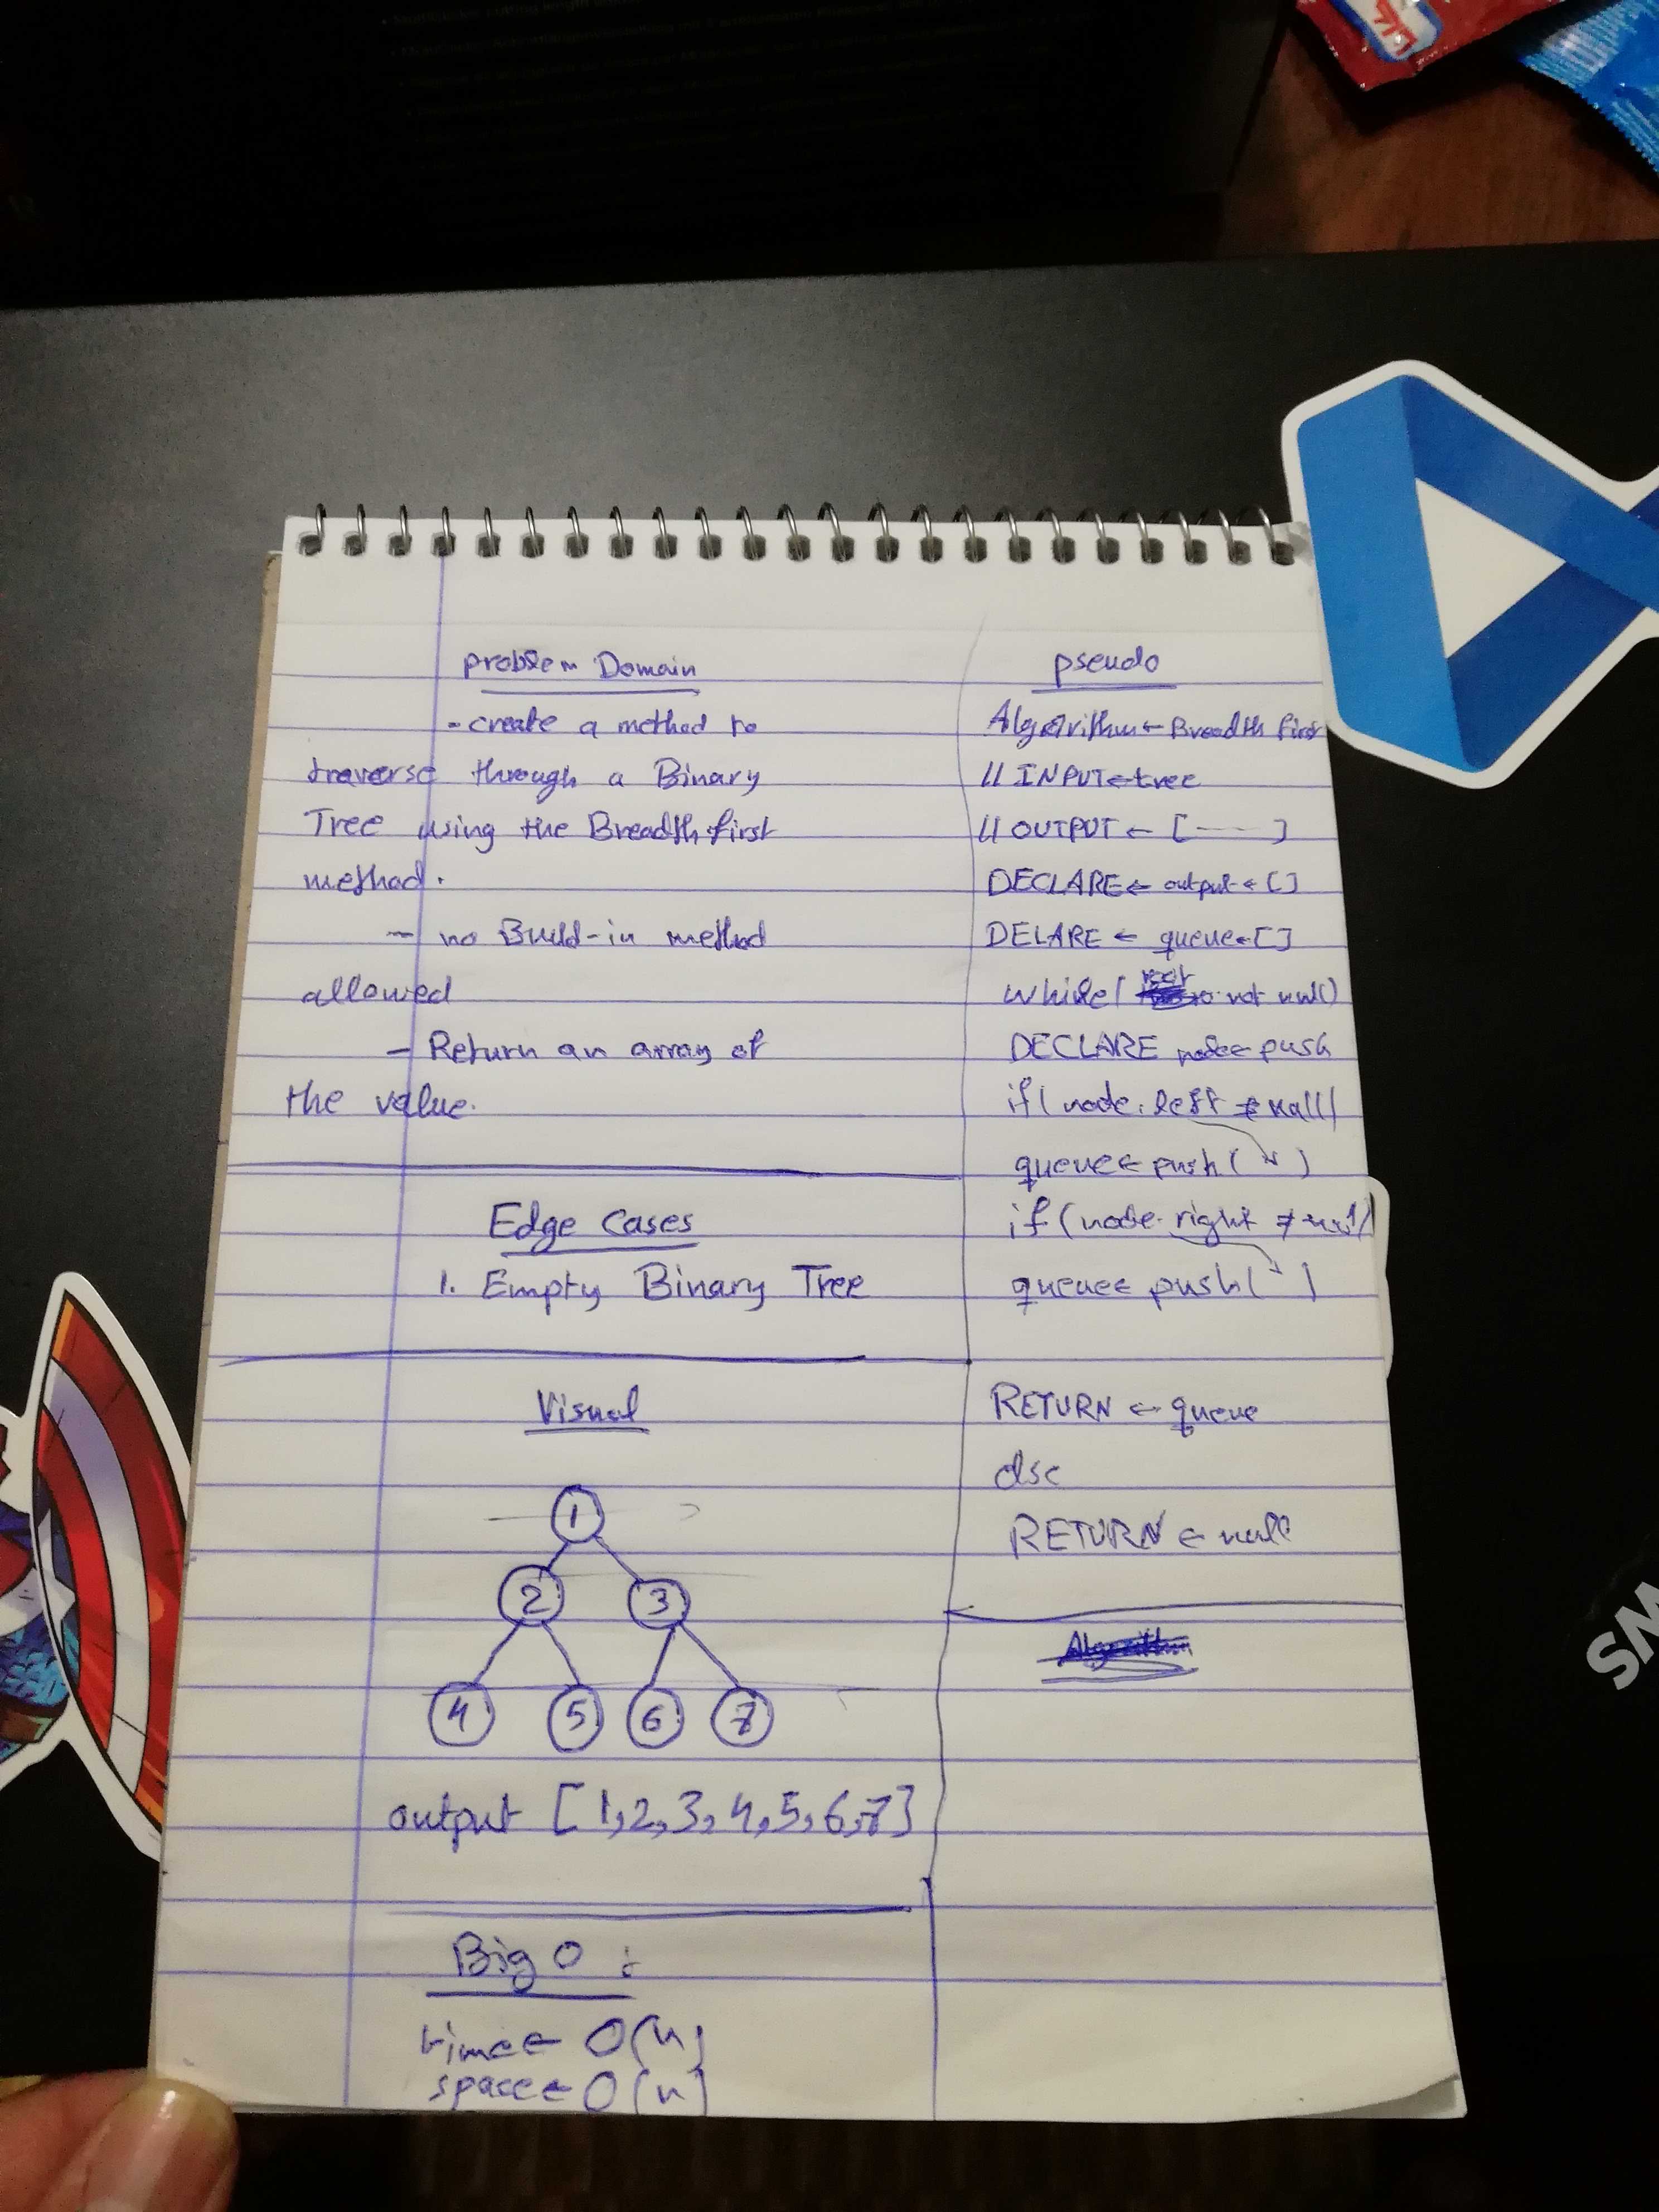 problem Domain
- create a method to
traverse through a Binary
Tree using the Breadth first
method.
- no Build-in method
allowed
- Return an array of
the value.
Edge Cases
1. Empty Binary Tree
Visual
1
2 3
4 5 6 7
output [1,2,3,4,5,6,7]
Big O :
time ← O(n)
space ← O(n)
pseudo
Algorithm ← Breadth first
// INPUT ← tree
// OUTPUT ← [----]
DECLARE ← output ← []
DELARE ← queue ← []
while( root not null)
DECLARE node ← push
if( node.left ≠ null)
queue ← push( )
if(node.right ≠ null)
queue ← push( )
RETURN ← queue
else
RETURN ← null
SM